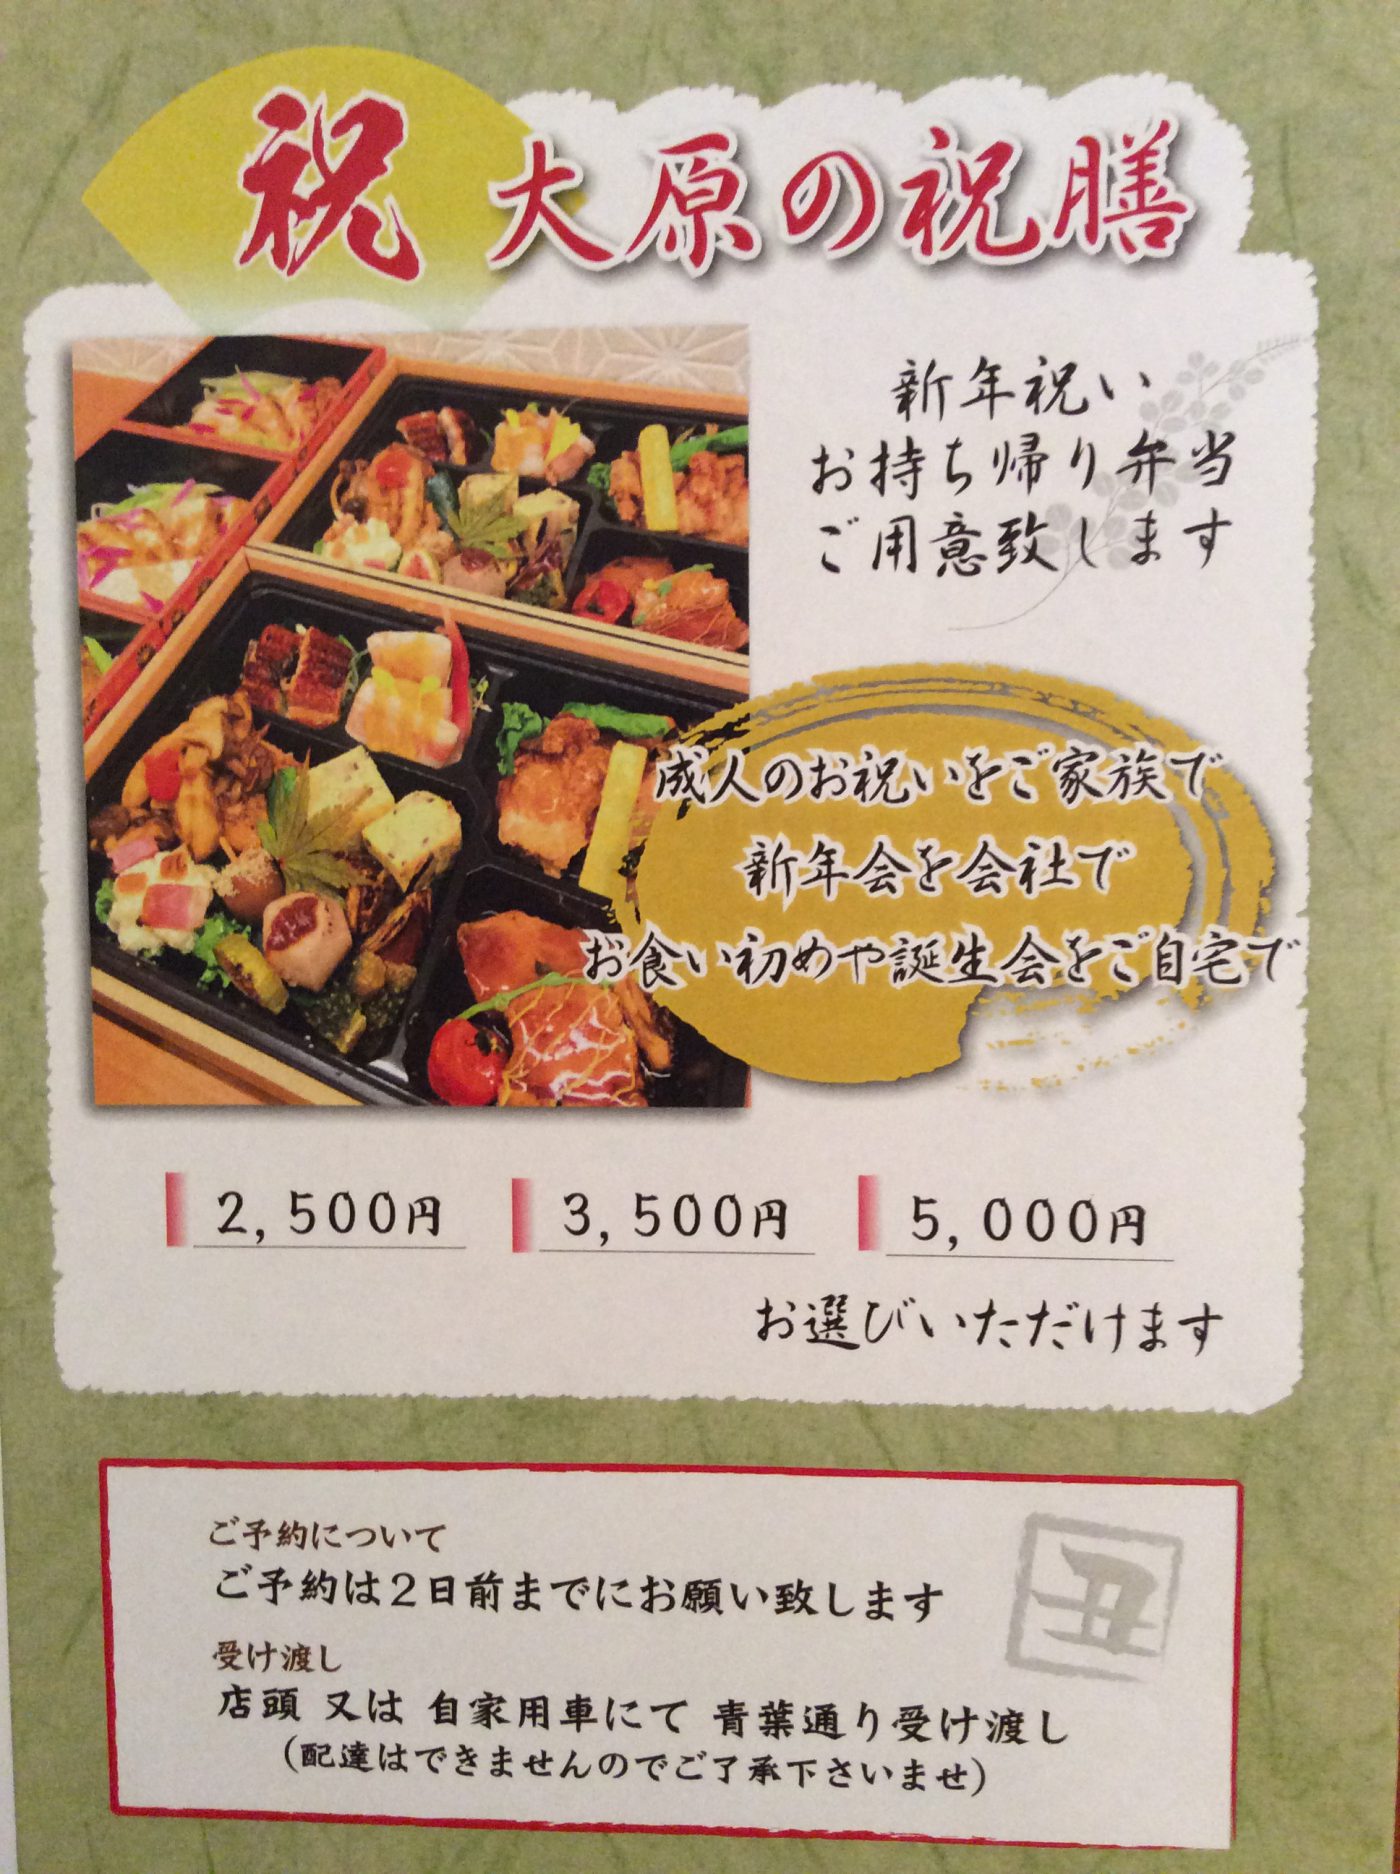 祝 大原の祝膳
新年祝い
お持ち帰り弁当
ご用意致します
成人のお祝いをご家族で
新年会を会社で
お食い初めや誕生会をご自宅で
2,500円 3,500円 5,000円
お選びいただけます
ご予約について
ご予約は2日前までにお願い致します
丑
受け渡し
店頭 又は 自家用車にて 青葉通り受け渡し
(配達はできませんのでご了承下さいませ)